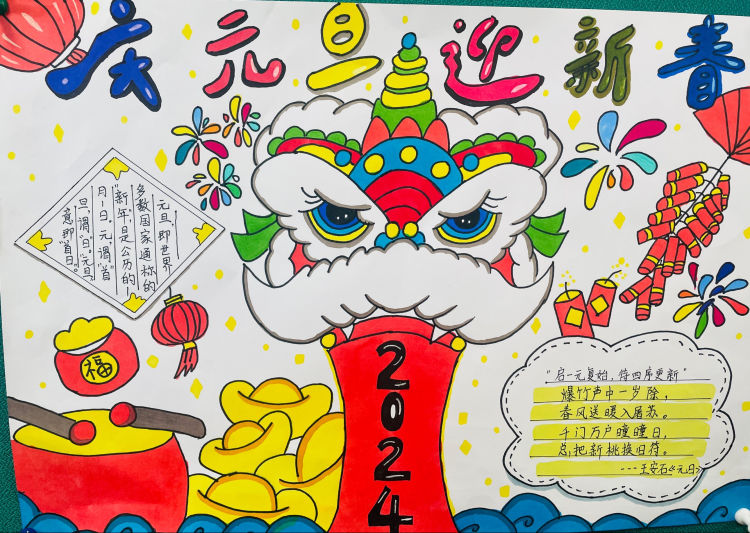 庆元旦迎新春
元旦,即世界
多数国家通称的
"新年",是公历的一
月一日。元,谓"首"
旦,谓"日","元旦"
意即"首日"。
福
2024
"启一元复始,待四序更新"
爆竹声中一岁除,
春风送暖入屠苏。
千门万户曈曈日,
总把新桃换旧符。
---王安石《元日》